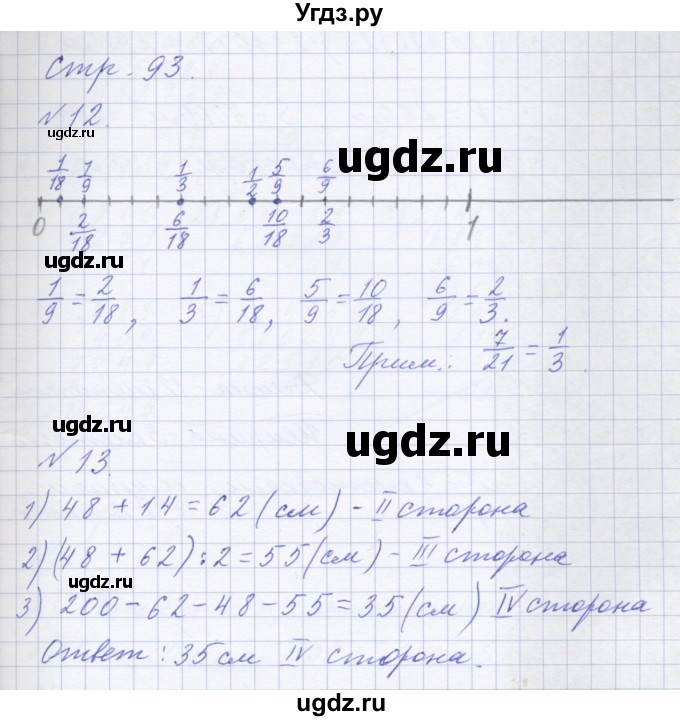 Угдз.ру
Стр. 93.
№12.
ugdz.ru
ugdz.ru
1/18 1/9 1/3 1/2 5/9 6/9
0 1
2/18 6/18 10/18 2/3
ugdz.ru
1/9 = 2/18, 1/3 = 6/18, 5/9 = 10/18, 6/9 = 2/3.
Прим.: 7/21 = 1/3.
ugdz.ru
ugdz.ru
№13.
1) 48 + 14 = 62 (см) - II сторона
2) (48 + 62) : 2 = 55 (см) - III сторона
ugdz.ru
3) 200 - 62 - 48 - 55 = 35 (см) IV сторона
Ответ: 35 см IV сторона.
ugdz.ru